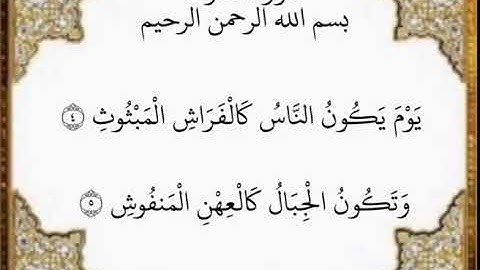 بسم الله الرحمن الرحيم
يَوْمَ يَكُونُ النَّاسُ كَالْفَرَاشِ الْمَبْثُوثِ ٤
وَتَكُونُ الْجِبَالُ كَالْعِهْنِ الْمَنفُوشِ ٥